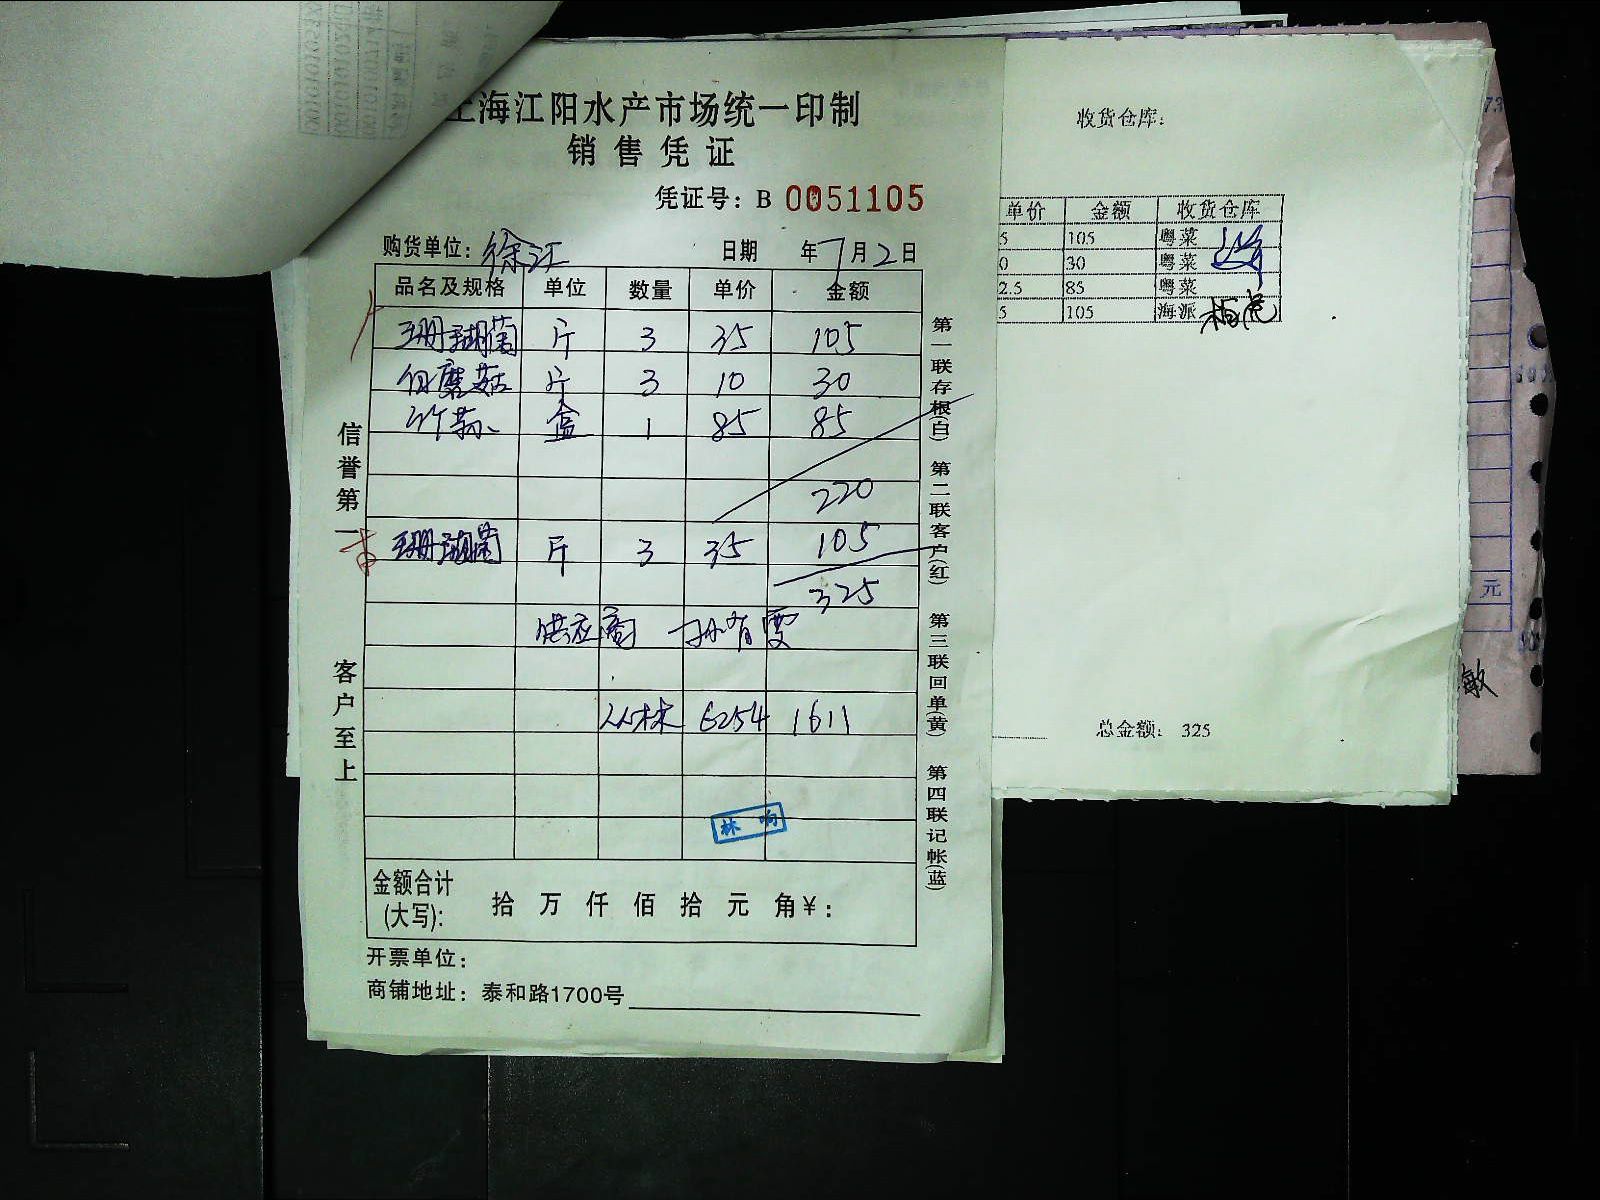 上海江阳水产市场统一印制
销售凭证
凭证号：B 0051105
购货单位：徐江 日期 年7月2日
品名及规格 单位 数量 单价 金额
珊瑚菌 斤 3 35 105
白蘑菇 斤 3 10 30
竹荪 盒 1 85 85
220
珊瑚菌 斤 3 35 105
325
供应商 孙有雯
从林 6254 1611
林 响
金额合计
(大写)： 拾 万 仟 佰 拾 元 角￥：
开票单位：
商铺地址：泰和路1700号
信誉第一 客户至上
第一联存根(白) 第二联客户(红) 第三联回单(黄) 第四联记帐(蓝)
收货仓库：
单价 金额 收货仓库
5 105 粤菜
0 30 粤菜
2.5 85 粤菜
5 105 海派
总金额： 325
元
敏
73